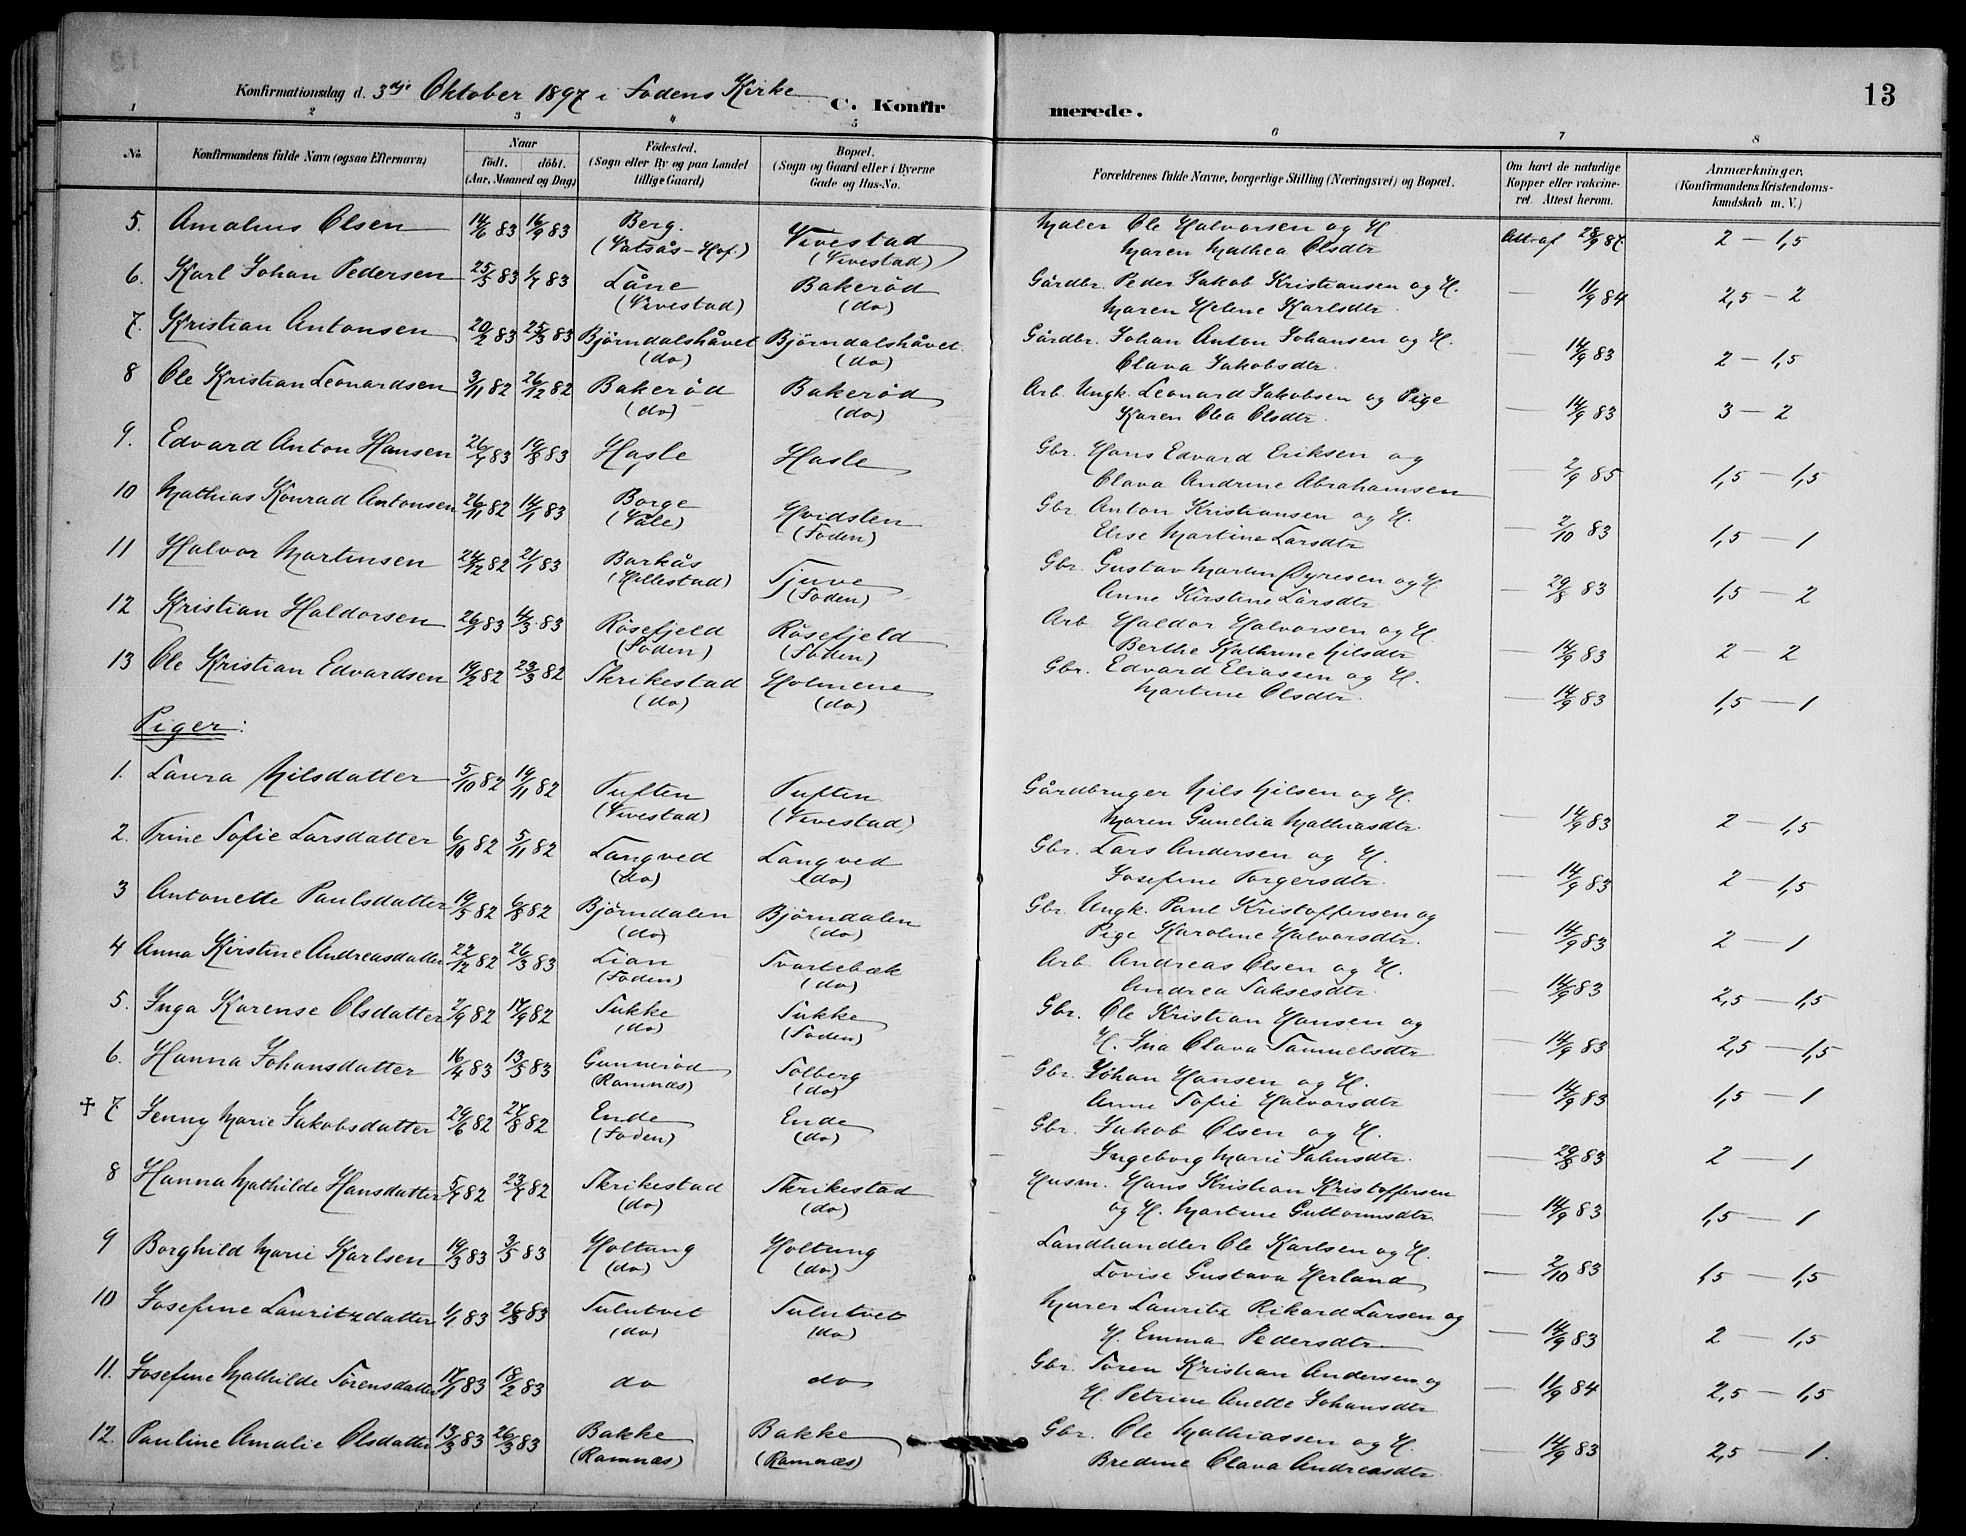 13
Konfirmationsdag d. 3dje Oktober 1897 i Fodens Kirke C. Konfirmerede.
1 2 3 4 5 6 7 8
No. Konfirmandens fulde Navn (ogsaa Efternavn) Naar født. døbt. (Aar, Maaned og Dag) Fødested. (Sogn eller By og paa Landet tillige Gaard) Bopæl. (Sogn og Gaard eller i Byerne Gade og Hus-No. Forældrenes fulde Navne, borgerlige Stilling (Næringsvei) og Bopæl. Om havt de naturlige Kopper eller vakcineret. Attest herom. Anmærkninger, (Konfirmandens Kristendomskundskab m. V.)
5. Amalius Olsen 14/6 83 16/9 83 Berg. Vivestad Maler Ole Halvorsen og H. Att. af 28/9 87. 2 — 1,5
(Vatsås - Hof.) (Vivestad) Maren Mathea Olsdtr
6. Karl Johan Pedersen 25/5 83 1/7 83 Låne Bakerød Gårdbr. Peder Jakob Kristiansen og H. — 11/9 84 2,5 — 2
(Vivestad) (do) Maren Helene Karlsdtr.
7. Kristian Antonsen 20/2 83 25/3 83 Bjørndalshåvet Bjørndalshåvet. Gårdbr. Johan Anton Johansen og H. — 14/9 83 2 — 1,5
(do) (do) Olava Jakobsdtr.
8 Ole Kristian Leonardsen 3/11 82 26/12 82 Bakerød Bakerød Arb. Ungk. Leonard Jakobsen og Pige — 14/9 83 3 — 2
(do) (do) Karen Olea Olsdtr.
9. Edvard Anton Hansen 26/7 83 19/8 83 Hasle Hasle Gbr. Hans Edvard Eriksen og — 2/9 85 1,5 — 1,5
Olava Andrine Abrahamsen
10 Mathias Konrad Antonsen 26/11 82 14/1 83 Borge Hvidsten Gbr. Anton Kristiansen og H. — 2/10 83 1,5 — 1
(Våle) (Foden) Elise Martine Larsdtr
11 Halvor Martinsen 24/12 82 21/1 83 Barkås Tjuve Gbr. Gustav Martin Dyresen og H. — 29/8 83 1,5 — 2
(Hillestad) (Foden) Anne Kirstine Larsdtr.
12 Kristian Haldorsen 26/1 83 4/3 83 Råsefjeld Råsefjeld Arb. Haldor Halvorsen og H. — 14/9 83 2 — 2
(Foden) (Foden) Berthe Kathrine Nilsdtr
13 Ole Kristian Edvardsen 19/2 82 23/3 82 Skrikestad Holmene Gbr. Edvard Eliassen og H. — 14/9 83 1,5 — 1
(do) (do) Martine Olsdtr.
Piger:
1. Laura Nilsdatter 5/10 82 19/11 82 Tuften Tuften Gårdbruger Nils Nilsen og H. — 14/9 83 2 — 1,5
(Vivestad) (Vivestad) Maren Gunelia Mathiasdtr.
2. Trine Sofie Larsdatter 6/10 82 5/11 82 Langved Langved Gbr. Lars Andersen og H. — 14/9 83 2 — 1,5
(do) (do) Josefine Torgersdtr.
3 Antonette Paulsdatter 19/5 82 6/8 82 Bjørndalen Bjørndalen Gbr. Ungk. Paul Kristoffersen og — 14/9 83 2 — 1
(do) (do) Pige Karoline Halvorsdtr.
4 Anna Kirstine Andreasdatter 22/12 82 26/3 83 Lian Svartebæk Arb. Andreas Olsen og H. — 14/9 83 2,5 — 1,5
(Foden) (do) Andrea Saksesdtr.
5. Inga Karense Olsdatter 2/9 82 17/9 82 Sukke Sukke Gbr. Ole Kristian Hansen og — 14/9 83 2,5 — 1,5
(do) (Foden) H. Ina Olava Samuelsdtr
6. Hanna Johansdatter 16/4 83 13/5 83 Gunnerød Solberg Gbr. Johan Hansen og H. — 14/9 83 1,5 — 1
(Ramnæs) (do) Anne Sofie Halvorsdtr
✝ 7 Jenny Marie Jakobsdatter 24/6 82 27/8 82 Ende Ende Gbr. Jakob Olsen og H. — 29/8 83 2 — 1
(Foden) (do) Ingeborg Marie
8 Hanna Mathilde Hansdatter 5/7 82 23/7 82 Skrikestad Skrikestad Husm. Hans Kristian Kristoffersen — 14/9 83 1,5 — 1
(do) (do) og H. Martine Guttormsdtr.
9 Borghild Marie Karlsen 19/3 83 3/5 83 Holtung Holtung Landhandler Ole Karlsen og H. — 2/10 83 1,5 — 1,5
(do) (do) Lovise Gustava Herland
10 Josefine Lauritzdatter 1/1 83 26/3 83 Sulutvet Sulutvet Murer Lauritz Rikard Larsen og — 14/9 83 2 — 1,5
(do) (do) H. Emma Pedersdtr.
11. Josefine Mathilde Sørensdatter 17/1 83 18/2 83 do do Gbr. Søren Kristian Andersen og — 11/9 84 2,5 — 1,5
H. Petrine Anette Johansdtr
12. Pauline Amalie Olsdatter 13/3 83 26/3 83 Bakke Bakke Gbr. Ole Mathiassen og H. — 14/9 83 2,5 — 1.
(Ramnæs) (Ramnæs) Bredine Olava Andreasdtr.